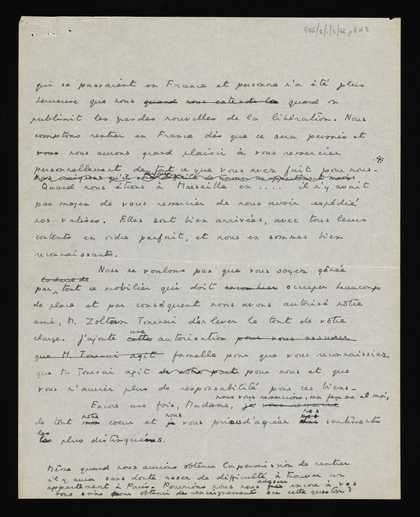 qui se passaient en France et personne n'a été plus
heureuse que nous quand nous entendu la quand on
publiait les grandes nouvelles de la libération. Nous
comptons rentrer en France dès que ce sera permis et
nous aurons grand plaisir à vous remercier
personnellement de tout ce que vous avez fait pour nous.
Quand nous étions à Marseille en .... il n'y avait
pas moyen de vous remercier de nous avoir expédié
nos valises. Elles sont bien arrivées, avec tous leurs
contents en ordre parfait, et nous en sommes bien
reconnaissants.
Nous ne voulons pas que vous soyez gênée
par tout ce mobilier qui doit occuper beaucoup
de place et par conséquent nous avons autorisé notre
ami, M. Tournai d'enlever le tout de votre
charge. J'ajoute une cette autorisation pour vous assurer
que M. Tournai agit formelle pour que vous reconnaissiez
que M. Tournai agit pour nous et que
vous n'auriez plus de responsabilité pour ces biens.
Encore une fois, Madame, nous vous remercions, ma femme et moi,
de tout notre mon coeur et nous je vous prions d'agréer nos sentiments
les plus distingués.
Même quand nous aurions obtenu la permission de rentrer
il y aura sans doute assez de difficulté à trouver un
appartement à Paris. Pourrions nous nous encore à vos
bons soins pour obtenir des renseignements sur cette question?